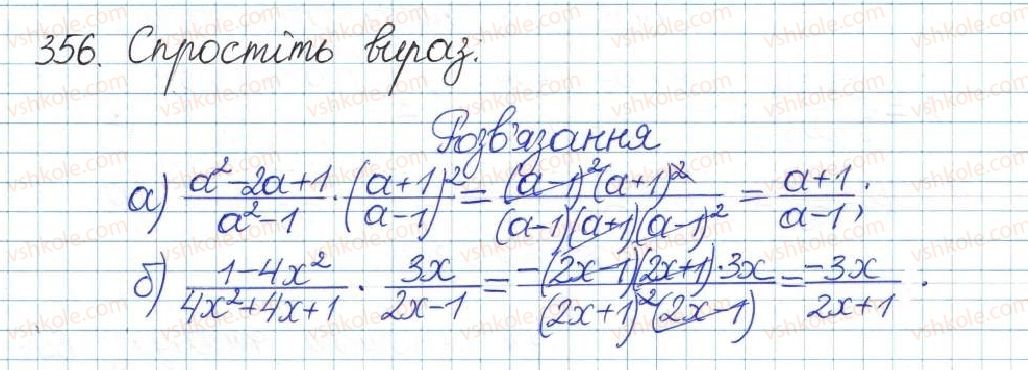 356. Спростіть вираз:
Розв'язання
а) \frac{a^2-2a+1}{a^2-1} \cdot \left(\frac{a+1}{a-1}\right)^2 = \frac{(a-1)^2(a+1)^2}{(a-1)(a+1)(a-1)^2} = \frac{a+1}{a-1};
б) \frac{1-4x^2}{4x^2+4x+1} \cdot \frac{3x}{2x-1} = \frac{-(2x-1)(2x+1)\cdot 3x}{(2x+1)^2(2x-1)} = \frac{-3x}{2x+1}.
vshkole.com